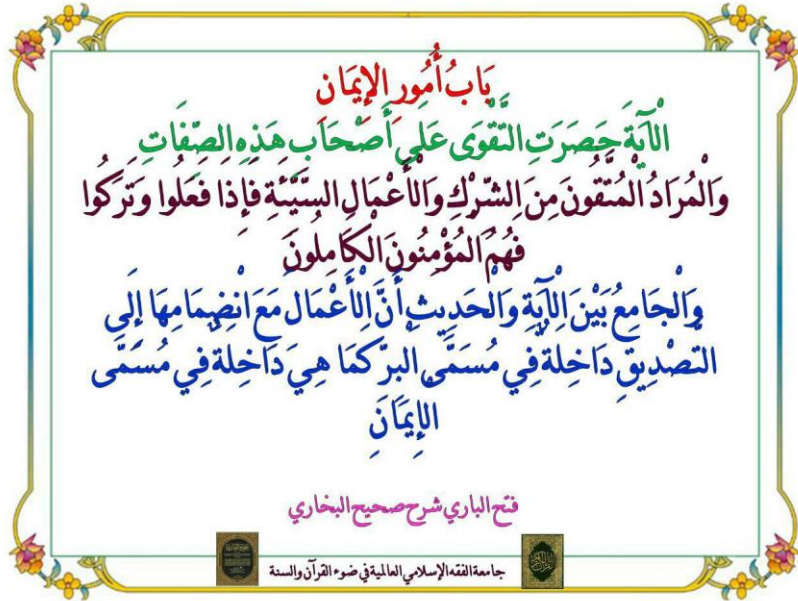 بَابُ أُمُورِ الإِيمَانِ
الْآيَةَ حَصَرَتِ التَّقْوَى عَلَى أَصْحَابِ هَذِهِ الصِّفَاتِ
وَالْمُرَادُ الْمُتَّقُونَ مِنَ الشِّرْكِ وَالْأَعْمَالِ السَّيِّئَةِ فَإِذَا فَعَلُوا وَتَرَكُوا
فَهُمُ الْمُؤْمِنُونَ الْكَامِلُونَ
وَالْجَامِعُ بَيْنَ الْآيَةِ وَالْحَدِيثِ أَنَّ الْأَعْمَالَ مَعَ انْضِمَامِهَا إِلَى
التَّصْدِيقِ دَاخِلَةٌ فِي مُسَمَّى الْبِرِّ كَمَا هِيَ دَاخِلَةٌ فِي مُسَمَّى
الْإِيمَانِ
فتح الباري شرح صحيح البخاري
جامعة الفقه الإسلامي العالمية في ضوء القرآن والسنة